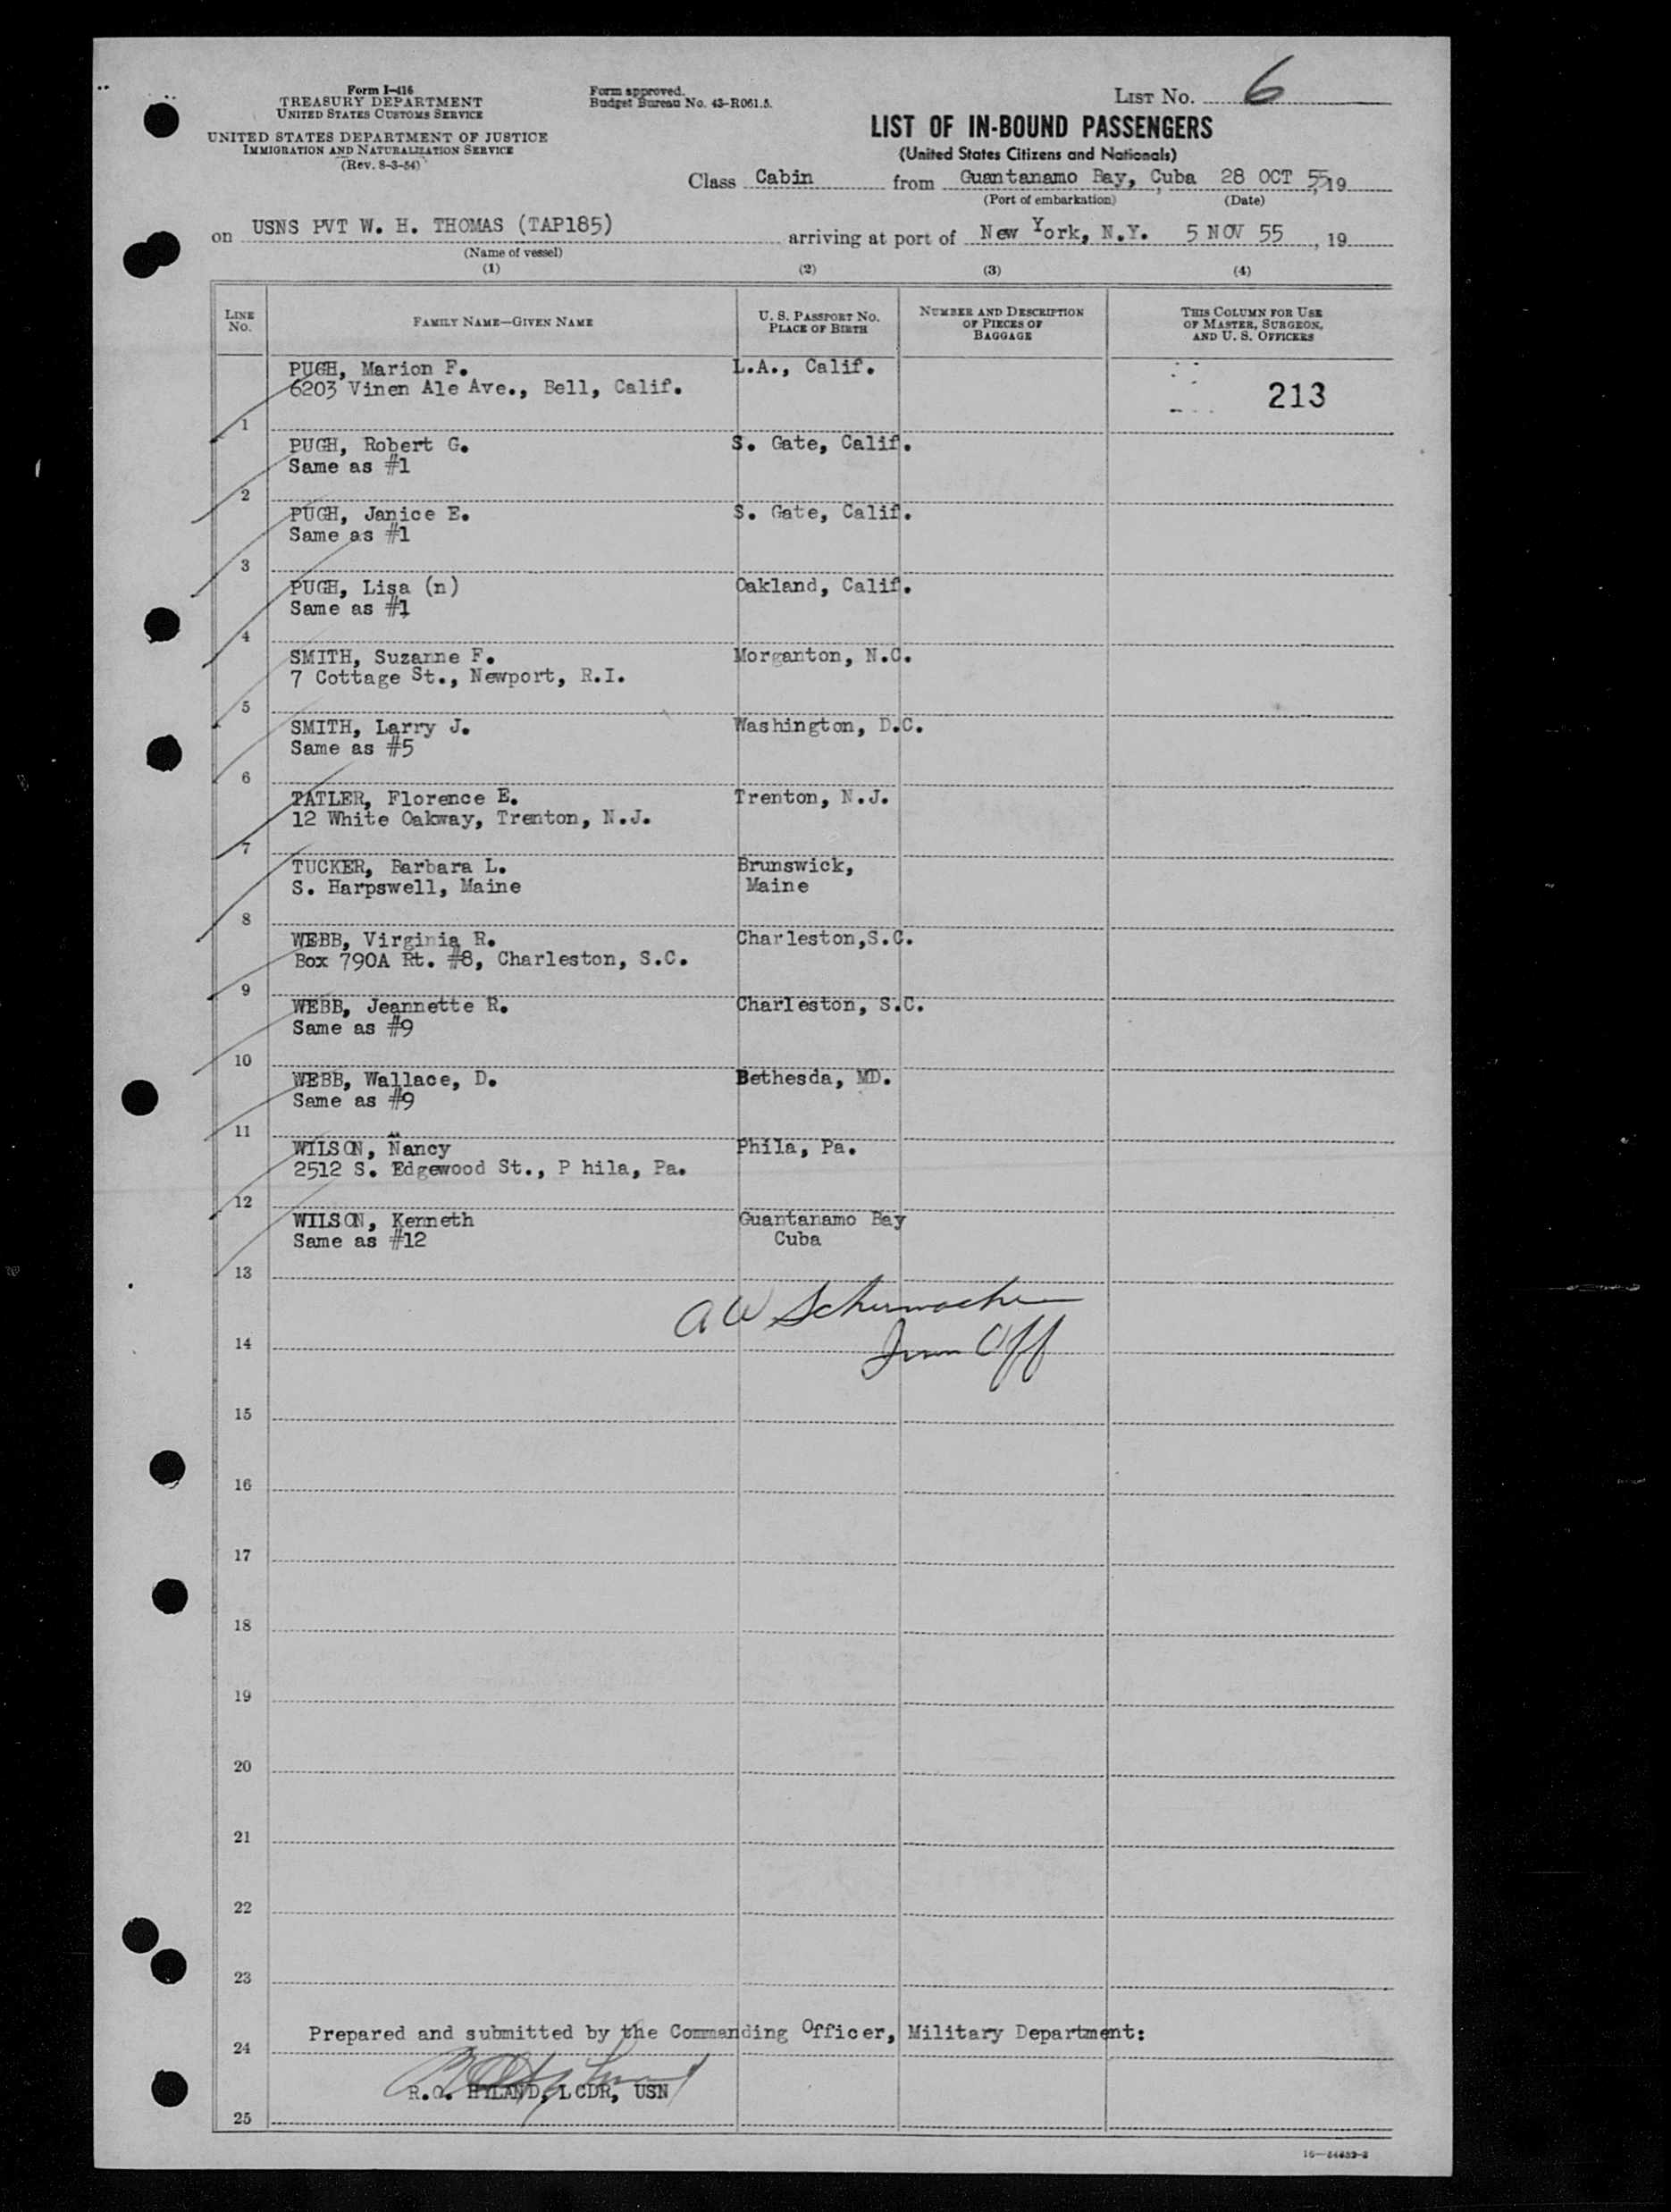 Form I-416
TREASURY DEPARTMENT
UNITED STATES CUSTOMS SERVICE
UNITED STATES DEPARTMENT OF JUSTICE
IMMIGRATION AND NATURALIZATION SERVICE
(Rev. 8-3-54)
Form approved.
Budget Bureau No. 43-R061.5.
LIST NO. 6
LIST OF IN-BOUND PASSENGERS
(United States Citizens and Nationals)
Class Cabin from Guantanamo Bay, Cuba 28 OCT 55, 19
(Port of embarkation) (Date)
on USNS PVT W. H. THOMAS (TAP185) arriving at port of New York, N.Y. 5 NOV 55, 19
(Name of vessel)
(1) (2) (3) (4)
LINE NO. FAMILY NAME—GIVEN NAME U. S. PASSPORT NO. PLACE OF BIRTH NUMBER AND DESCRIPTION OF PIECES OF BAGGAGE THIS COLUMN FOR USE OF MASTER, SURGEON, AND U. S. OFFICERS
PUGH, Marion F. L.A., Calif.
6203 Vinen Ale Ave., Bell, Calif. 213
1
PUGH, Robert G. S. Gate, Calif.
Same as #1
2
PUGH, Janice E. S. Gate, Calif.
Same as #1
3
PUGH, Lisa (n) Oakland, Calif.
Same as #1
4
SMITH, Suzanne F. Morganton, N.C.
7 Cottage St., Newport, R.I.
5
SMITH, Larry J. Washington, D.C.
Same as #5
6
TATLER, Florence E. Trenton, N.J.
12 White Oakway, Trenton, N.J.
7
TUCKER, Barbara L. Brunswick,
S. Harpswell, Maine Maine
8
WEBB, Virginia R. Charleston,S.C.
Box 790A Rt. #8, Charleston, S.C.
9
WEBB, Jeannette R. Charleston, S.C.
Same as #9
10
WEBB, Wallace, D. Bethesda, MD.
Same as #9
11
WILSON, Nancy Phila, Pa.
2512 S. Edgewood St., P hila, Pa.
12
WILSON, Kenneth Guantanamo Bay
Same as #12 Cuba
13
A W Schumacher
14 Imm Off
15
16
17
18
19
20
21
22
23
Prepared and submitted by the Commanding Officer, Military Department:
24
R.O. HYLAND, LCDR, USN
25